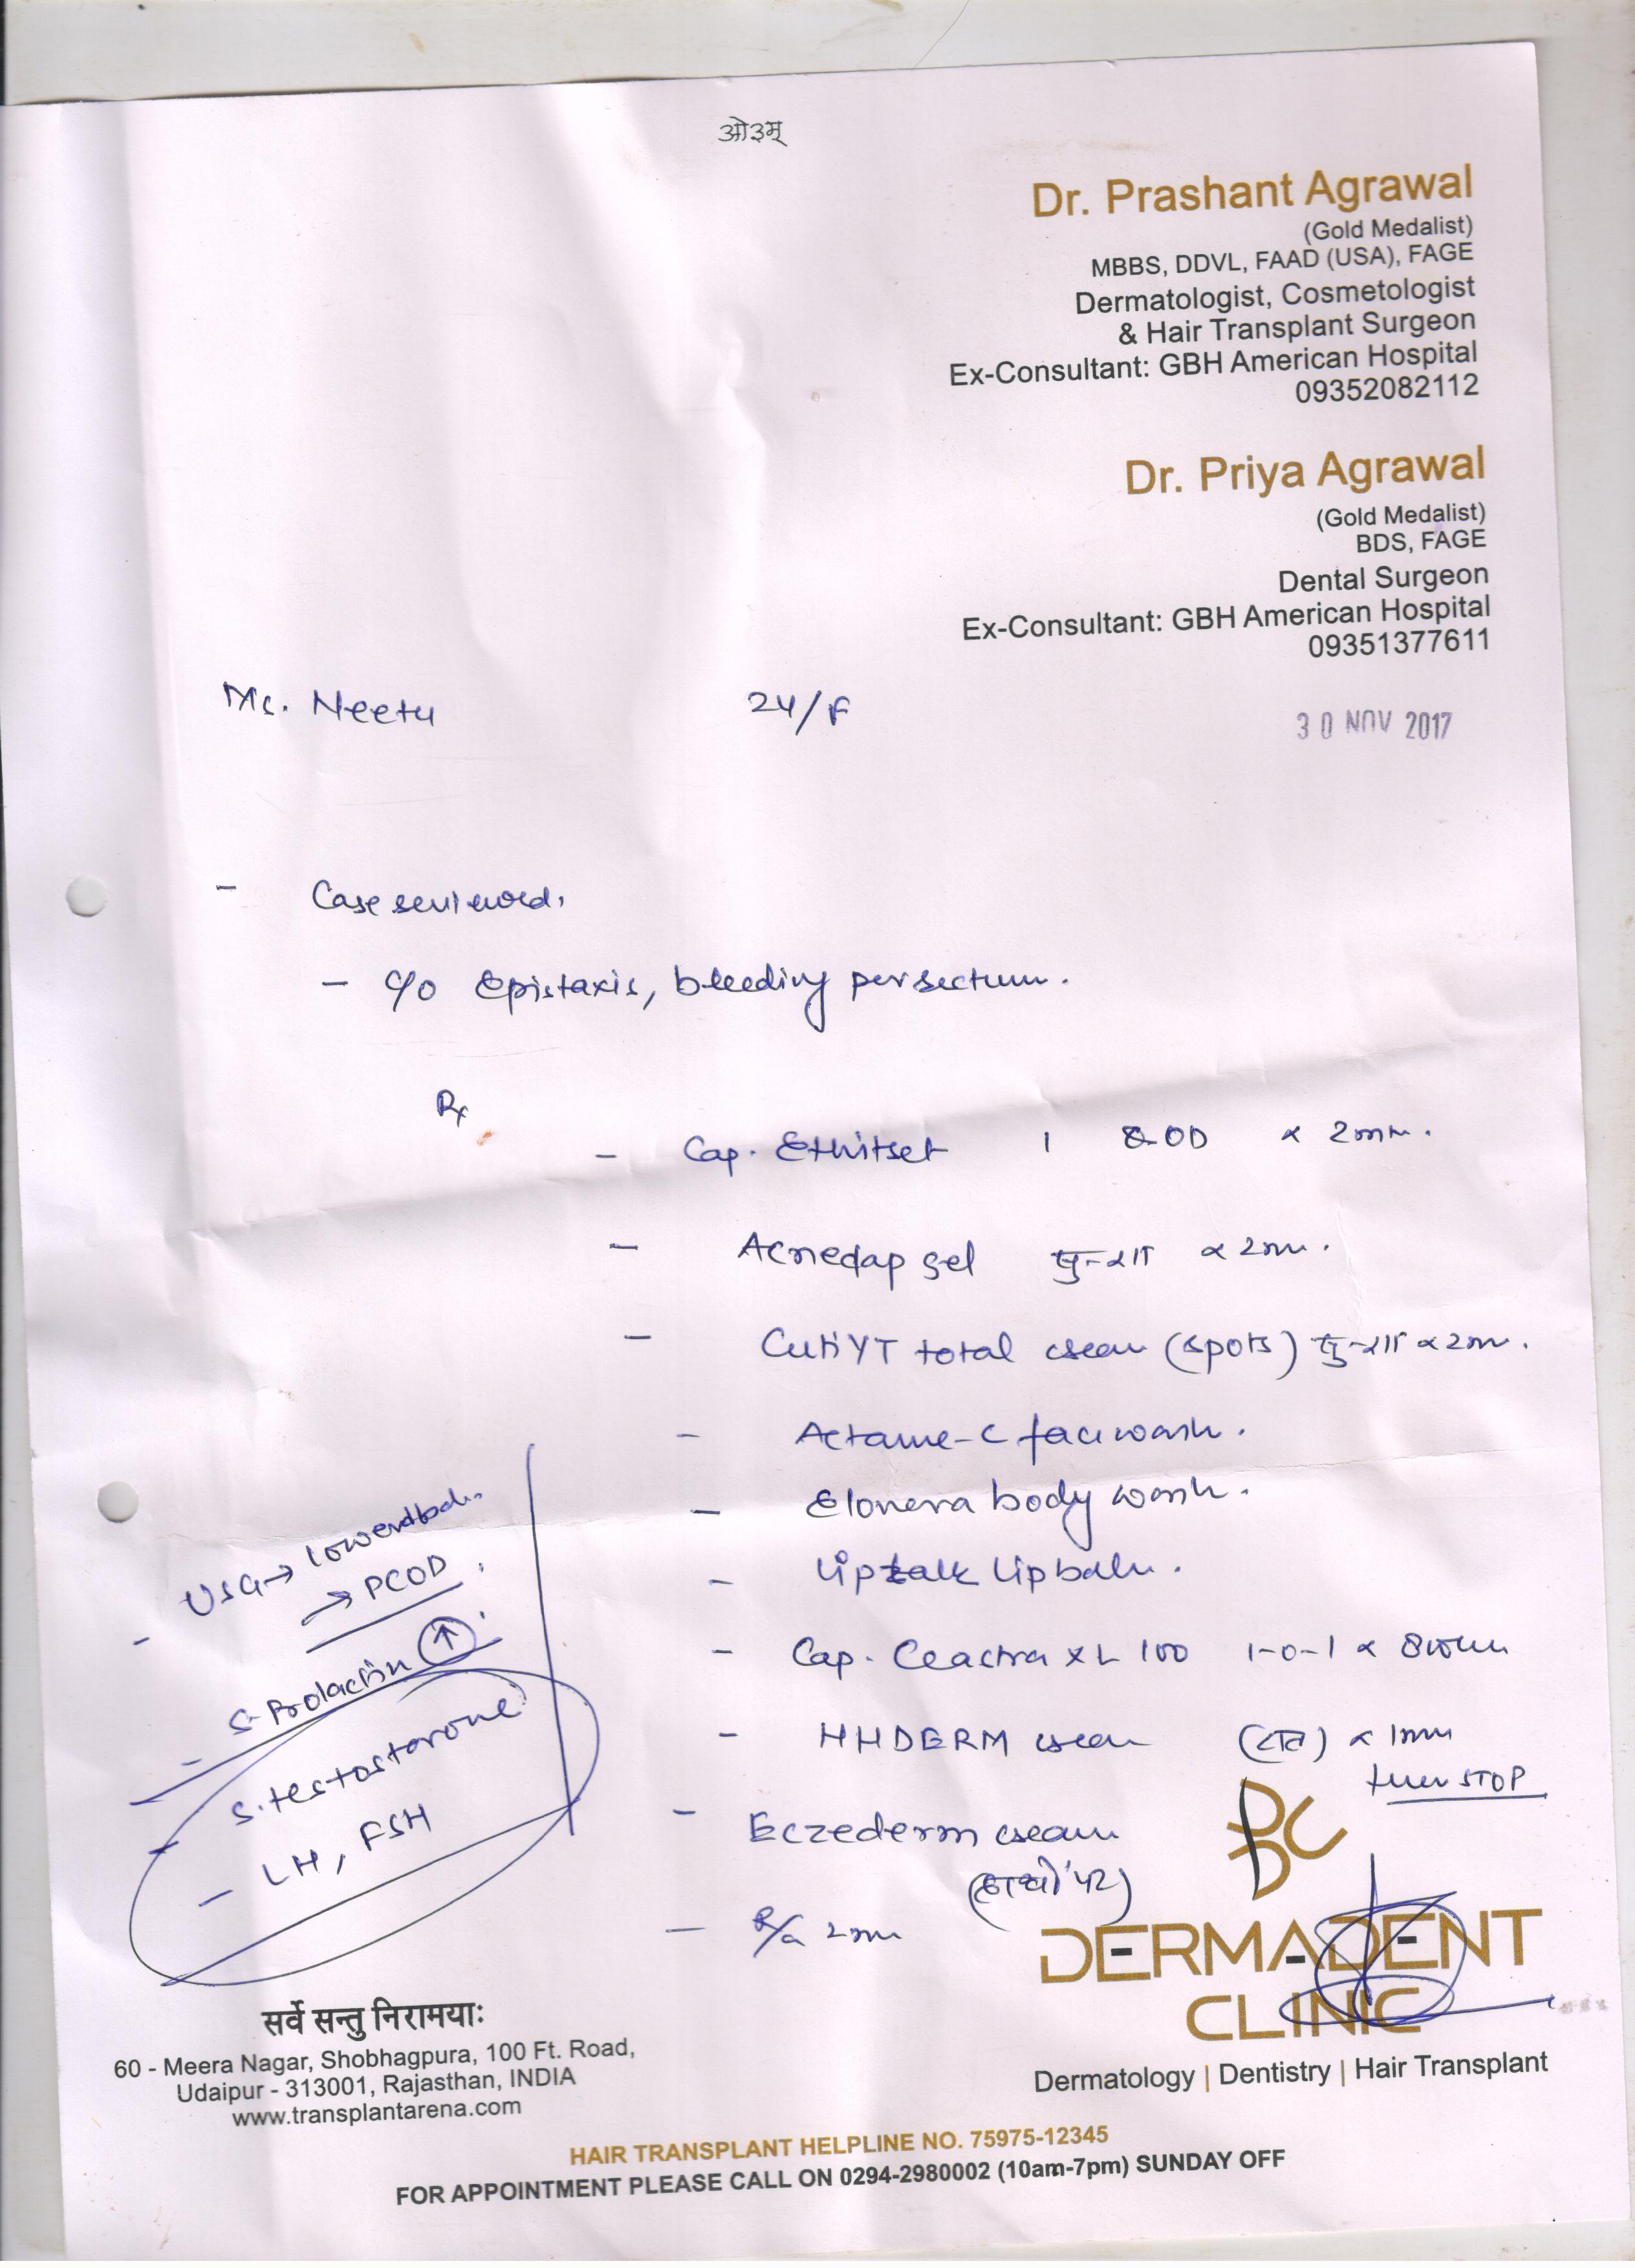 ओ३म्
Dr. Prashant Agrawal
(Gold Medalist)
MBBS, DDVL, FAAD (USA), FAGE
Dermatologist, Cosmetologist
& Hair Transplant Surgeon
Ex-Consultant: GBH American Hospital
09352082112
Dr. Priya Agrawal
(Gold Medalist)
BDS, FAGE
Dental Surgeon
Ex-Consultant: GBH American Hospital
09351377611
Ms. Neetu 24/F
30 NOV 2017
- Case reviewed.
- c/o Epistaxis, bleeding per rectum.
Rx
- Cap. 1 OD x 2
- Acnedap gel x 2
- total cream (spots) x 2
- facewash.
- body wash.
- Liptalk Lip balm.
- Cap. XL 100 1-0-1 x
- HHDERM cream (रात) x 1
then STOP
- Eczederm cream
(हाथों पर)
- 2
- USG →
→ PCOD
- S. Prolactin ↑
- S. testosterone
- LH, FSH
DC
DERMADENT
CLINIC
Dermatology | Dentistry | Hair Transplant
सर्वे सन्तु निरामयाः
60 - Meera Nagar, Shobhagpura, 100 Ft. Road,
Udaipur - 313001, Rajasthan, INDIA
www.transplantarena.com
HAIR TRANSPLANT HELPLINE NO. 75975-12345
FOR APPOINTMENT PLEASE CALL ON 0294-2980002 (10am-7pm) SUNDAY OFF